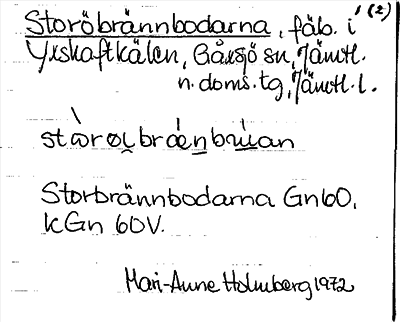 Storöbrännbodarna, fäb. i (2)
Yxskaftkälen, Gåxsjö sn, Jämtl.
n. doms. tg, Jämtl. l.
Storbrännbodarna Gn60,
kGn 60V.
Mari-Anne Holmberg 1972